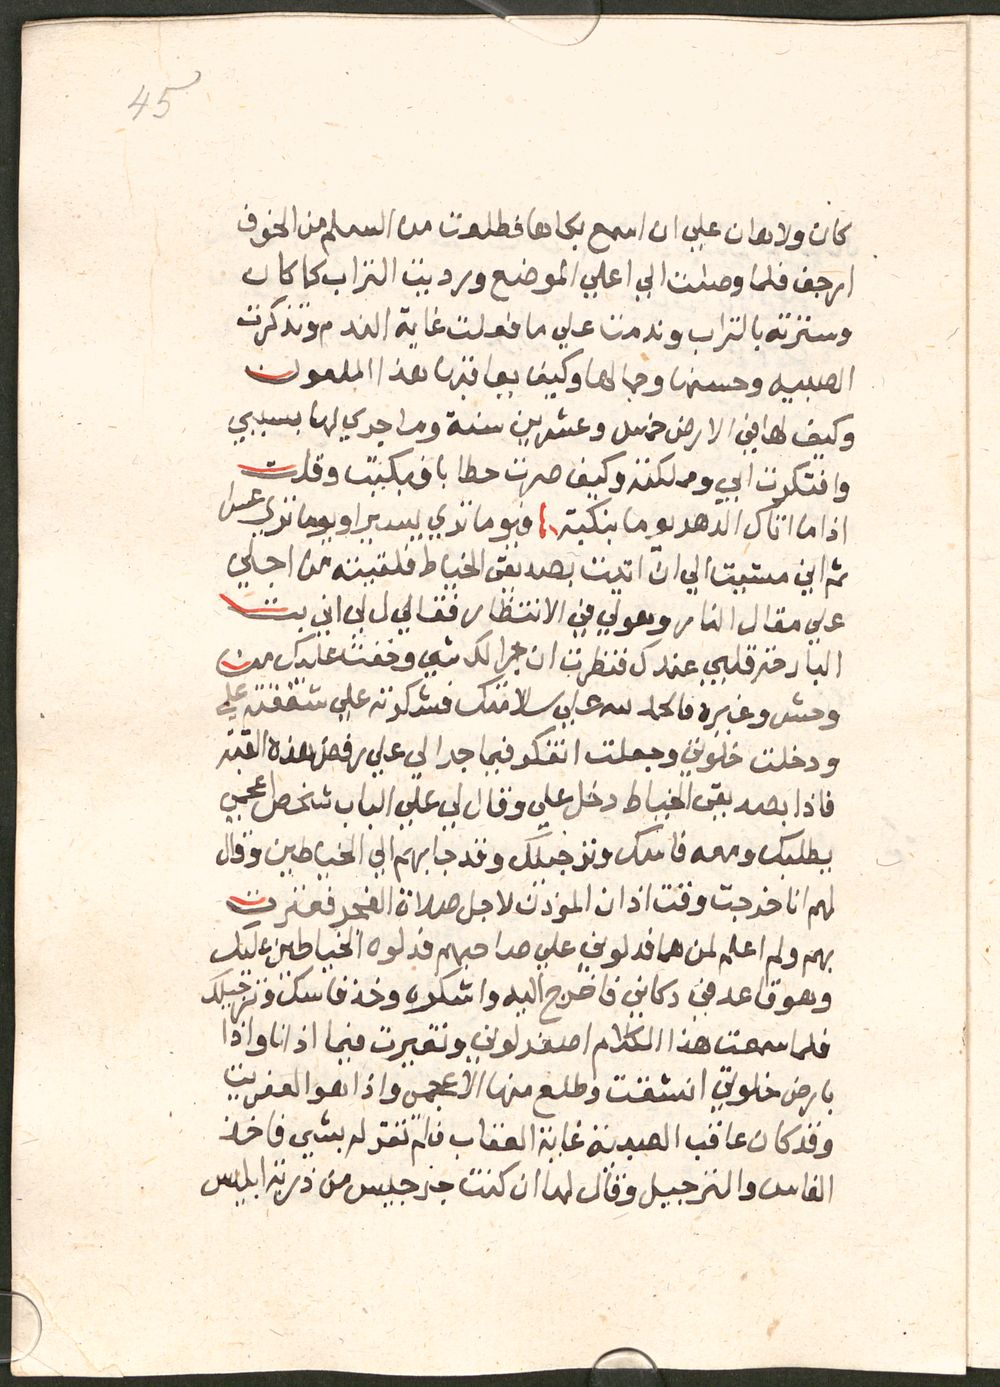 45
كان ولا هان علي ان اسمع بكاها فطلعت من السلم من الخوف
ارجف فلما وصلت الي اعلي الموضع ورديت التراب كما كان
وسترته بالتراب وندمت علي ما فعلت غاية الندم وتذكرت
الصبيه وحسنها وجمالها وكيف يعاقبها هذا الملعون
وكيف لها في الارض خمس وعشرين سنة وما جري لها بسببي
وافتكرت ابي ومملكته وكيف صرت حطابا فبكيت وقلت
اذا ما اتاك الدهر يوما بنكبة فيوما تري يسيرا ويوما تري عسرا
ثم اني مشيت الي ان اتيت بصديقي الخياط فلقيته من اجلي
علي مقال النار وهو لي في الانتظار فقال لي اني بت
البارحة قلبي عندك فنظرت ان جرا لك شي وخفت عليك من
وحش وغيره فالحمد لله علي سلامتك فشكرته علي شفقته علي
ودخلت خلوتي وجعلت اتفكر فيما جرا لي علي رفص هذه القبة
فاذا بصديقي الخياط دخل علي وقال لي علي الباب شخص اعجمي
يطلبك ومعه فاسك وزرجيلك وقد جا بهم الي الخياطين وقال
لهم انا خرجت وقت اذان المؤذن لاجل صلاة الفجر فعثرت
بهم ولم اعلم لمن هما فدلوني علي صاحبهم فدلوه الخياطين عليك
وهو قاعد في دكاني فاخرج اليه واشكره وخذ فاسك وزرجيلك
فلما سمعت هذا الكلام اصفر لوني وتغيرت فبينما اذ انا واذا
بارض خلوتي انشقت وطلع منها الاعجمي واذا هو العفريت
وقد كان عاقب الصبية غاية العقاب فلم تقر له بشي فاخذ
الفاس والزرجيل وقال لها ان كنت جرجيس من ذرية ابليس